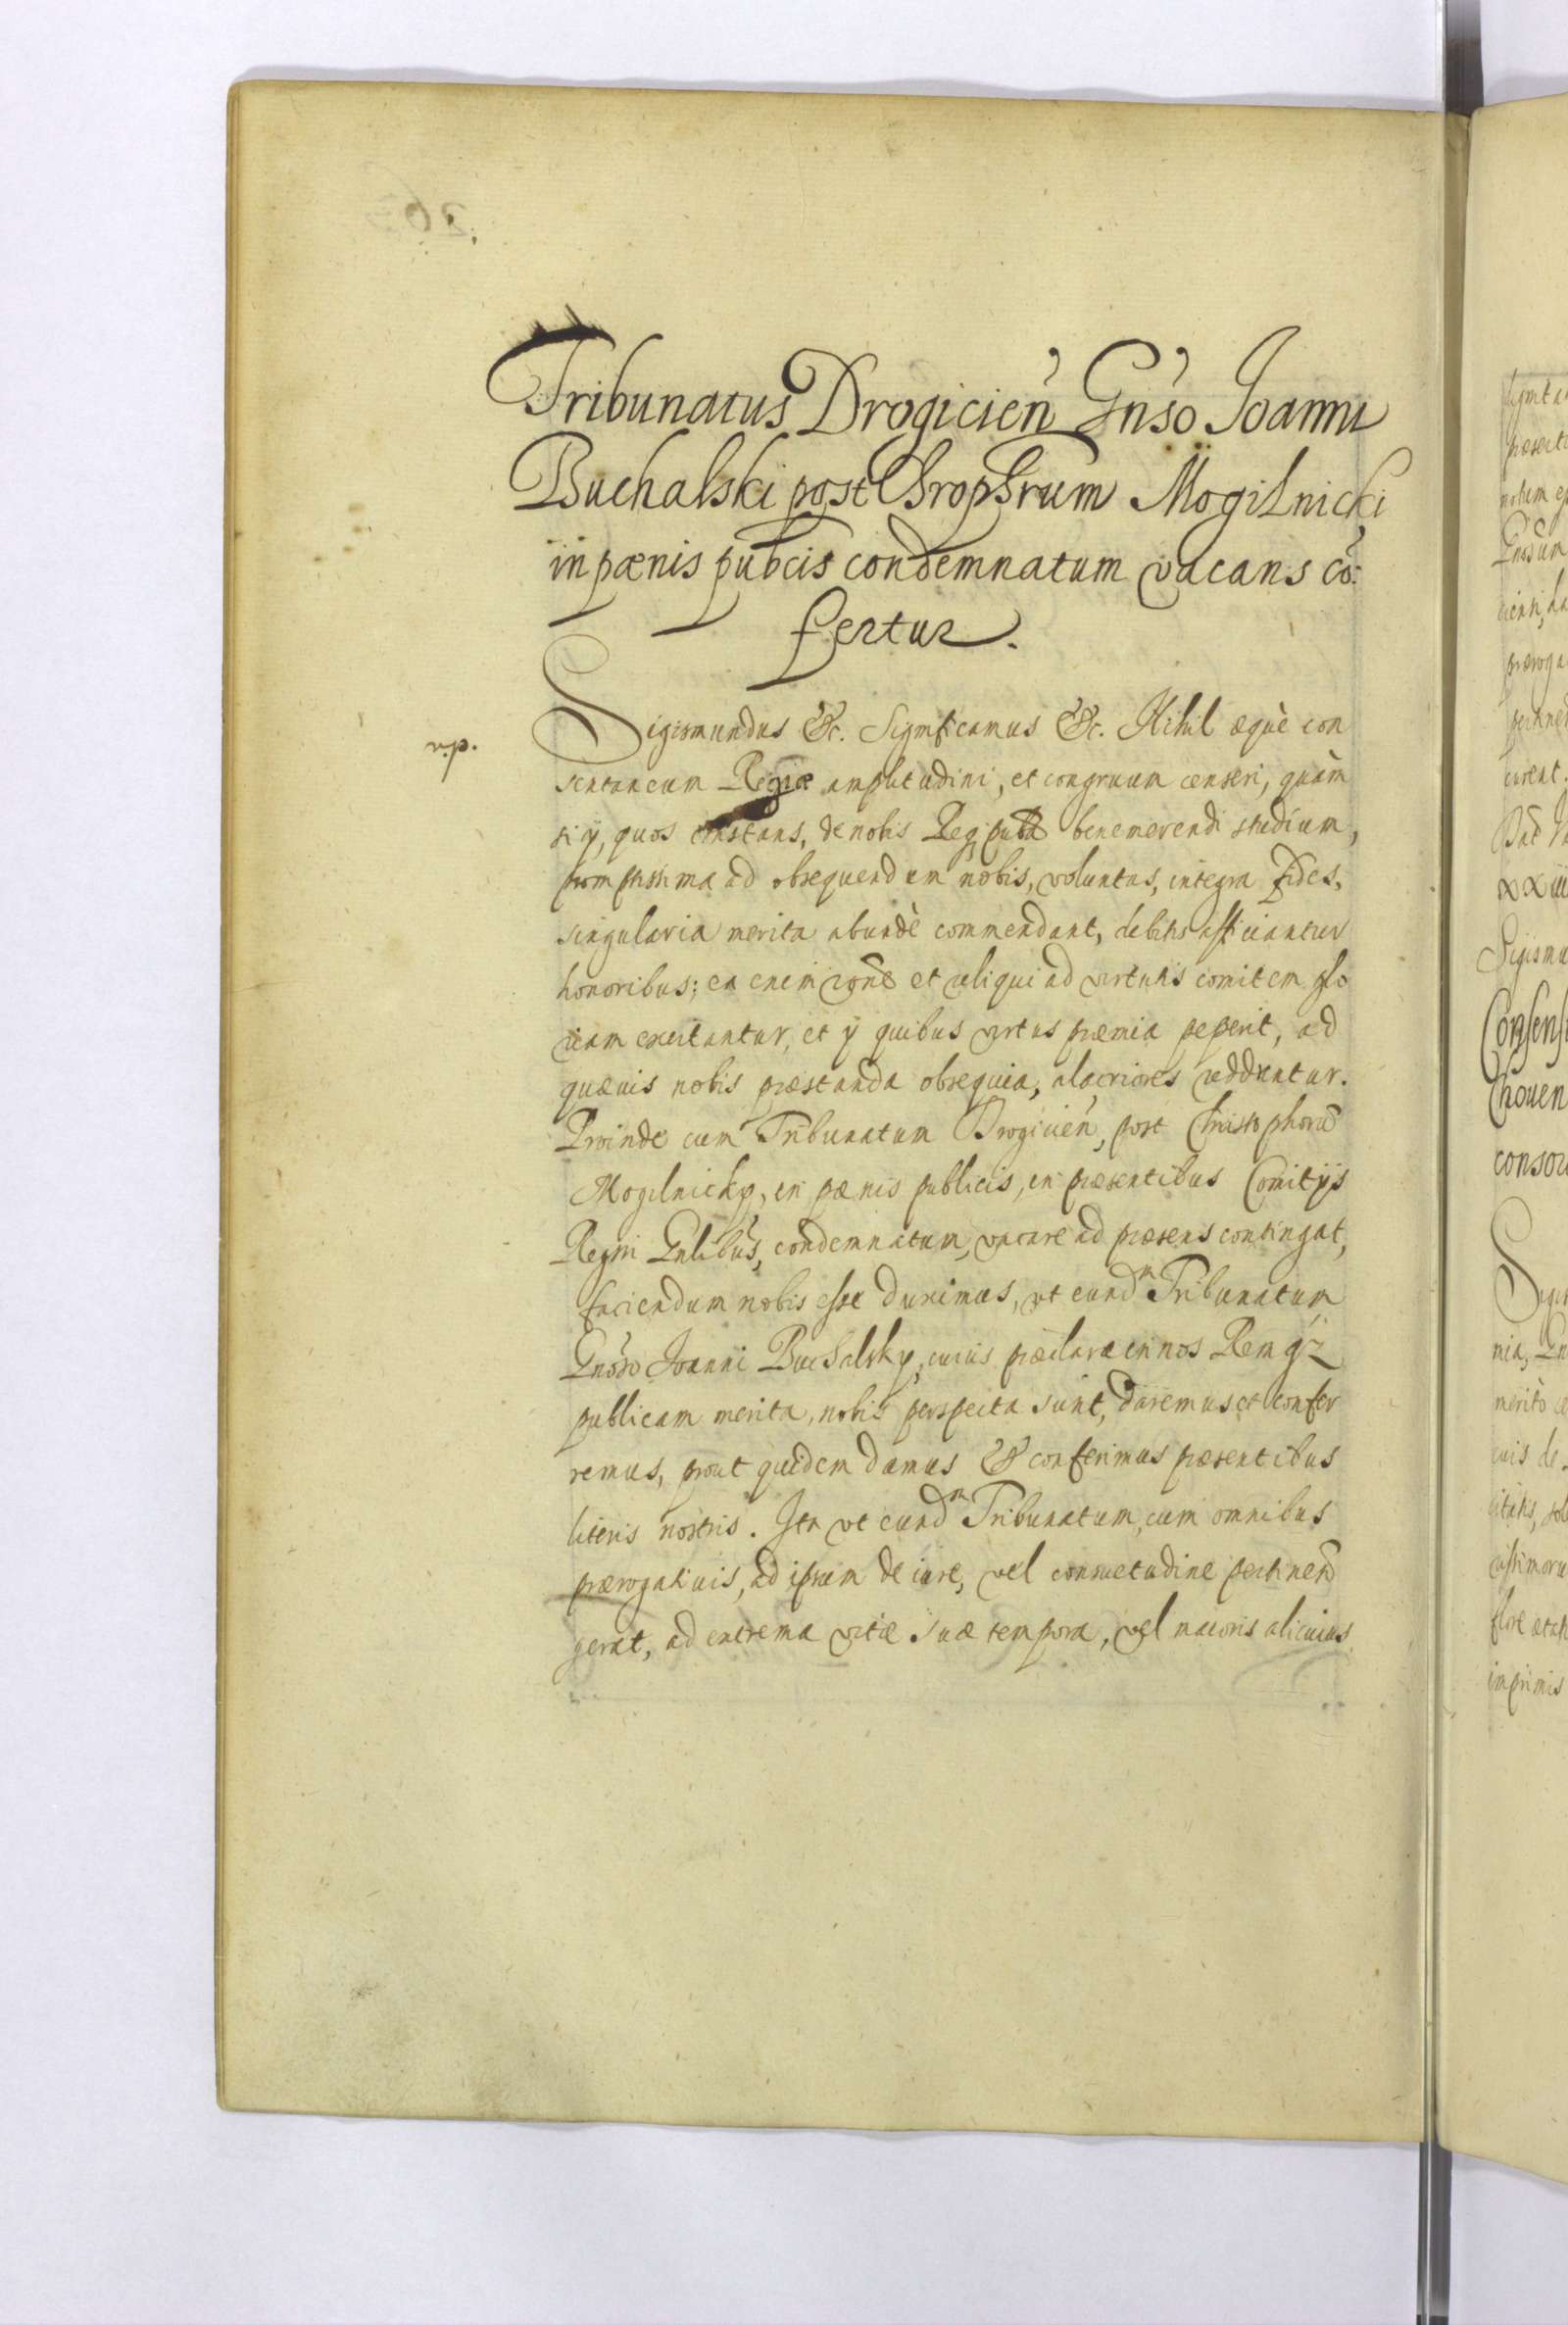 Tribunatus Drogicień Gnso Joanni
Buchalski post Chrophrum Mogilnicki
in pœnis pubcis condemnatum vacans cō:
fertur.
Sigismundus &c. Significamus &c. Nihil æquè con
sentaneum Regiæ amplitudini, et congruum censeri, quàm
si ÿ, quos constans, de nobis Reqꝫ benemerendi studium,
promptissima ad obsequendum nobis, voluntas, integra fides,
singularia merita abundè commendant, debitis afficiantur
honoribus; ea enim rone et reliqui ad virtutis comitem glo
riam excitantur, et ÿ quibus virtus præmia peperit, ad
quævis nobis præstanda obsequia, alacriores reddantur.
Proinde cum Tribunatum Drogicień, post Christophorū
Mogilnicky, in pœnis publicis, in præsentibus Comitÿs
Regni Gnlibus, condemnatum, vacare ad præsens contingat,
faciendum nobis esse duximus, vt eundm Tribunatum
Gnoso Joanni Buchalsky, cuius præclara in nos Remqꝫ
publicam merita, nobis perspecta sunt, daremus et confer
remus, prout quidem damus & conferimus præsentibus
literis nostris. Ita vt eundm Tribunatum, cum omnibus
prærogatiuis, ad ipsum de iure, vel consuetudine pertinen
gerat, ad extrema vitæ suæ tempora, vel maioris alicuius